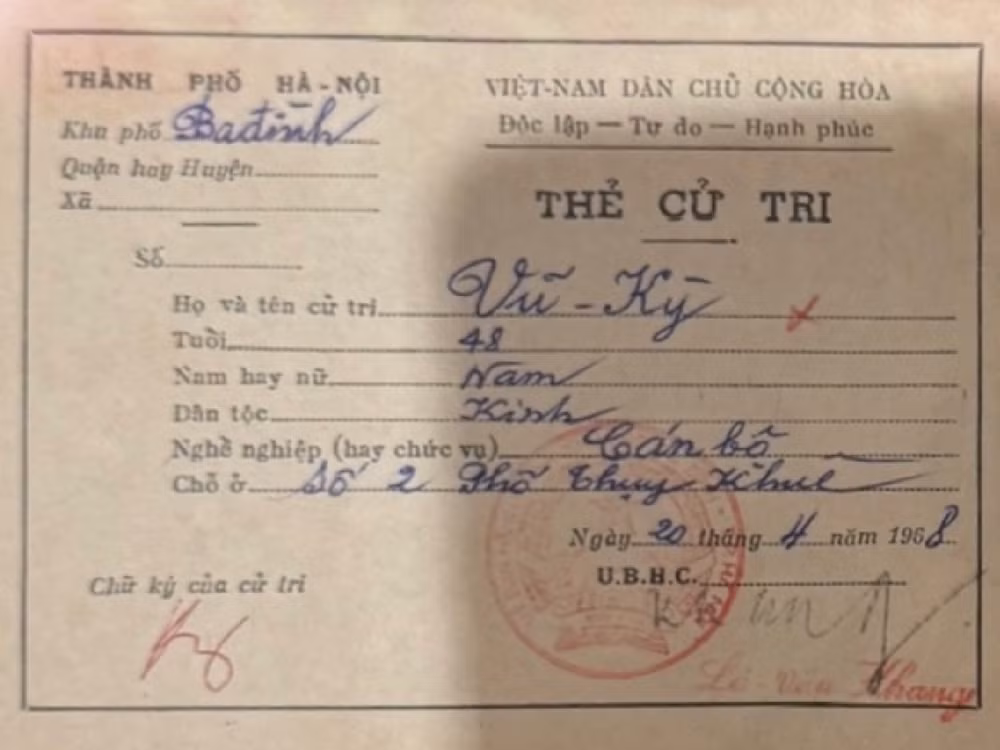 THÀNH PHỐ HÀ-NỘI
Khu phố Ba đình
Quận hay Huyện
Xã
VIỆT-NAM DÂN CHỦ CỘNG HÒA
Độc lập — Tự do — Hạnh phúc
THẺ CỬ TRI
Số
Họ và tên cử tri Vũ - Kỳ
Tuổi 48
Nam hay nữ Nam
Dân tộc Kinh
Nghề nghiệp (hay chức vụ) Cán bộ
Chỗ ở Số 2 Phố Thụy Khuê
Ngày 20 tháng 4 năm 1968
U.B.H.C.
Chữ ký của cử tri
Kỳ
Lê-Văn Khang